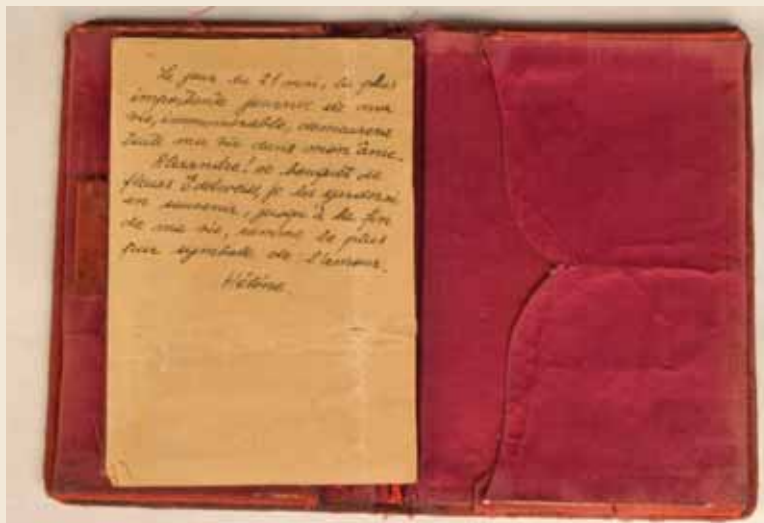 Le jour du 21 mai, la plus
importante journée de ma
vie, demeurera
toute ma vie dans mon âme.
Alexandre! ce bouquet de
fleurs Edelweiss, je les garderai
en souvenir, jusqu'à la fin
de ma vie, comme le plus
pur symbole de l'amour.
Hélène.